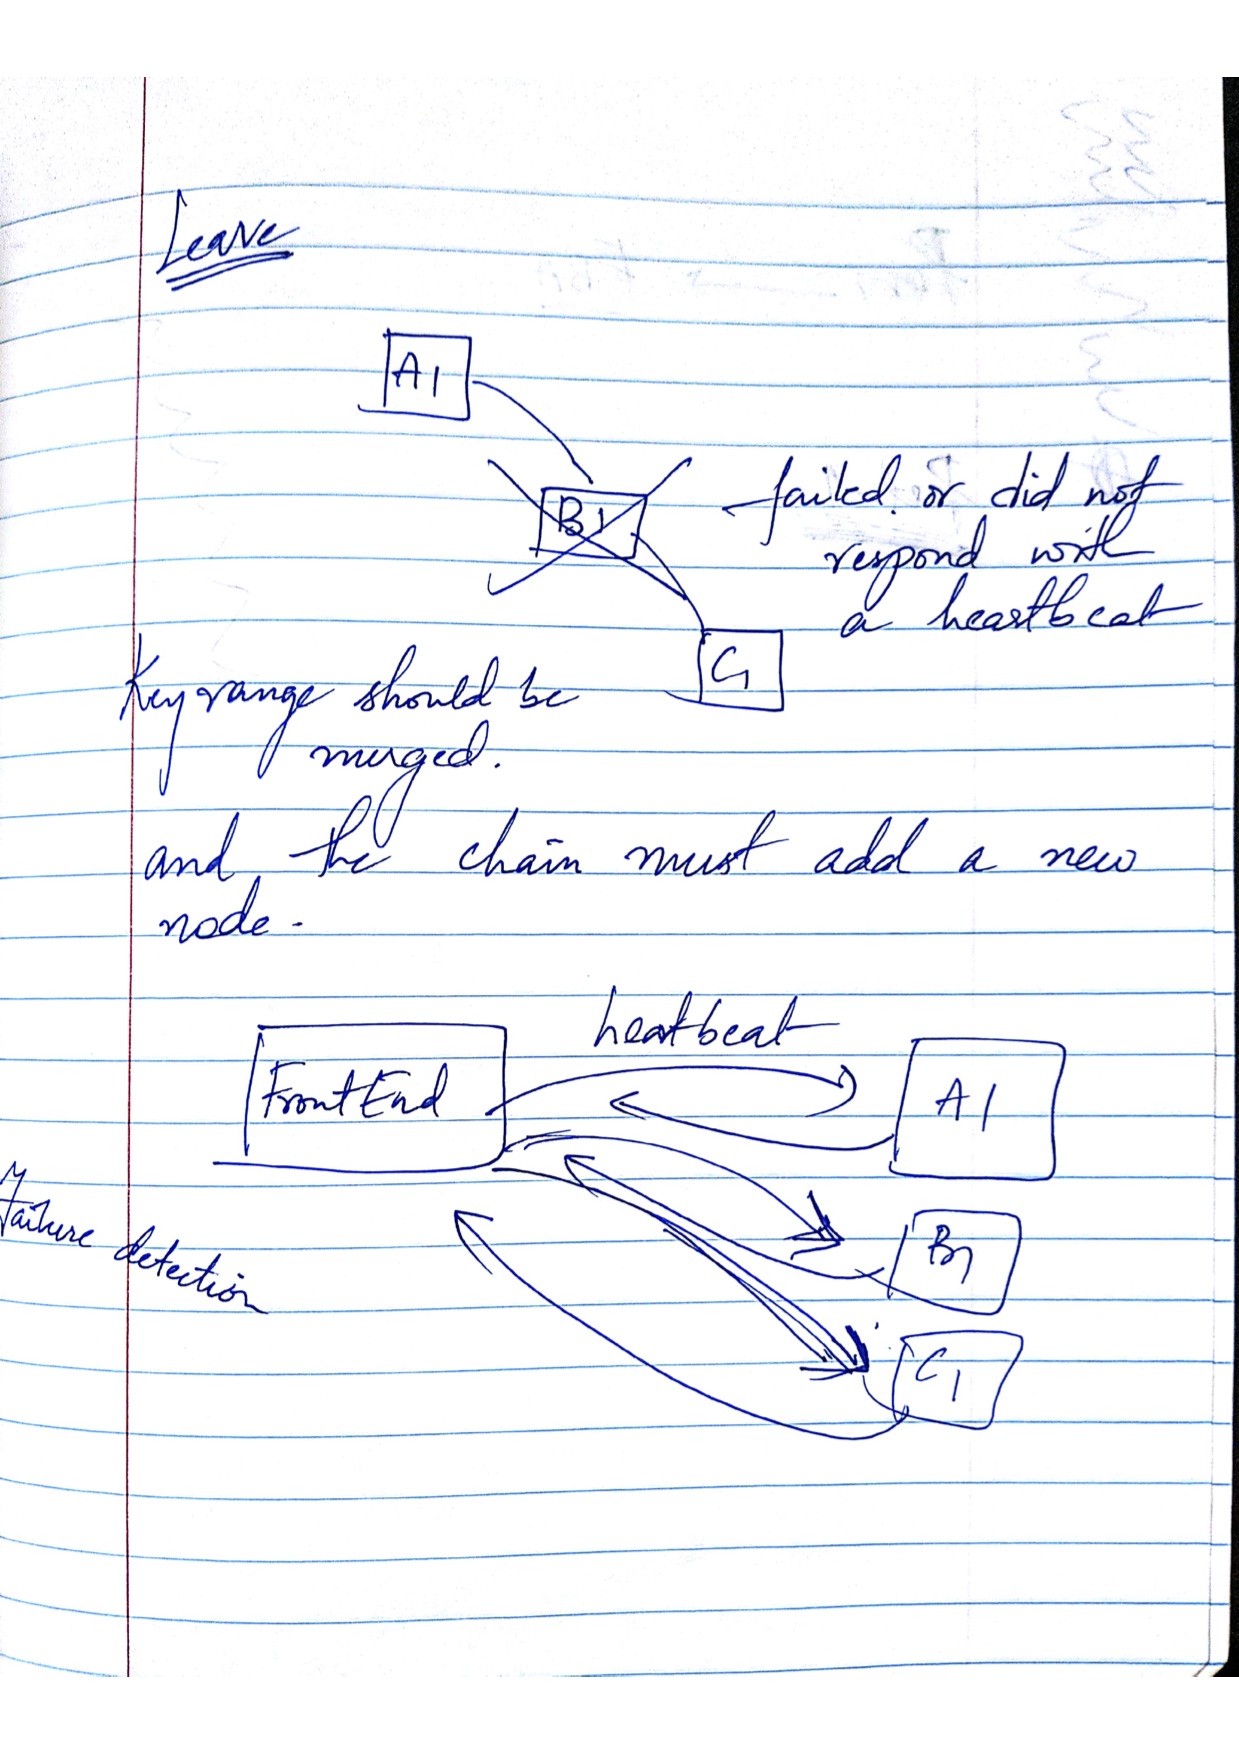 Leave
A1
B1
failed or did not
respond with
a heartbeat
C1
Key range should be
merged.
and the chain must add a new
node.
heartbeat
FrontEnd
A1
Failure detection
B1
C1